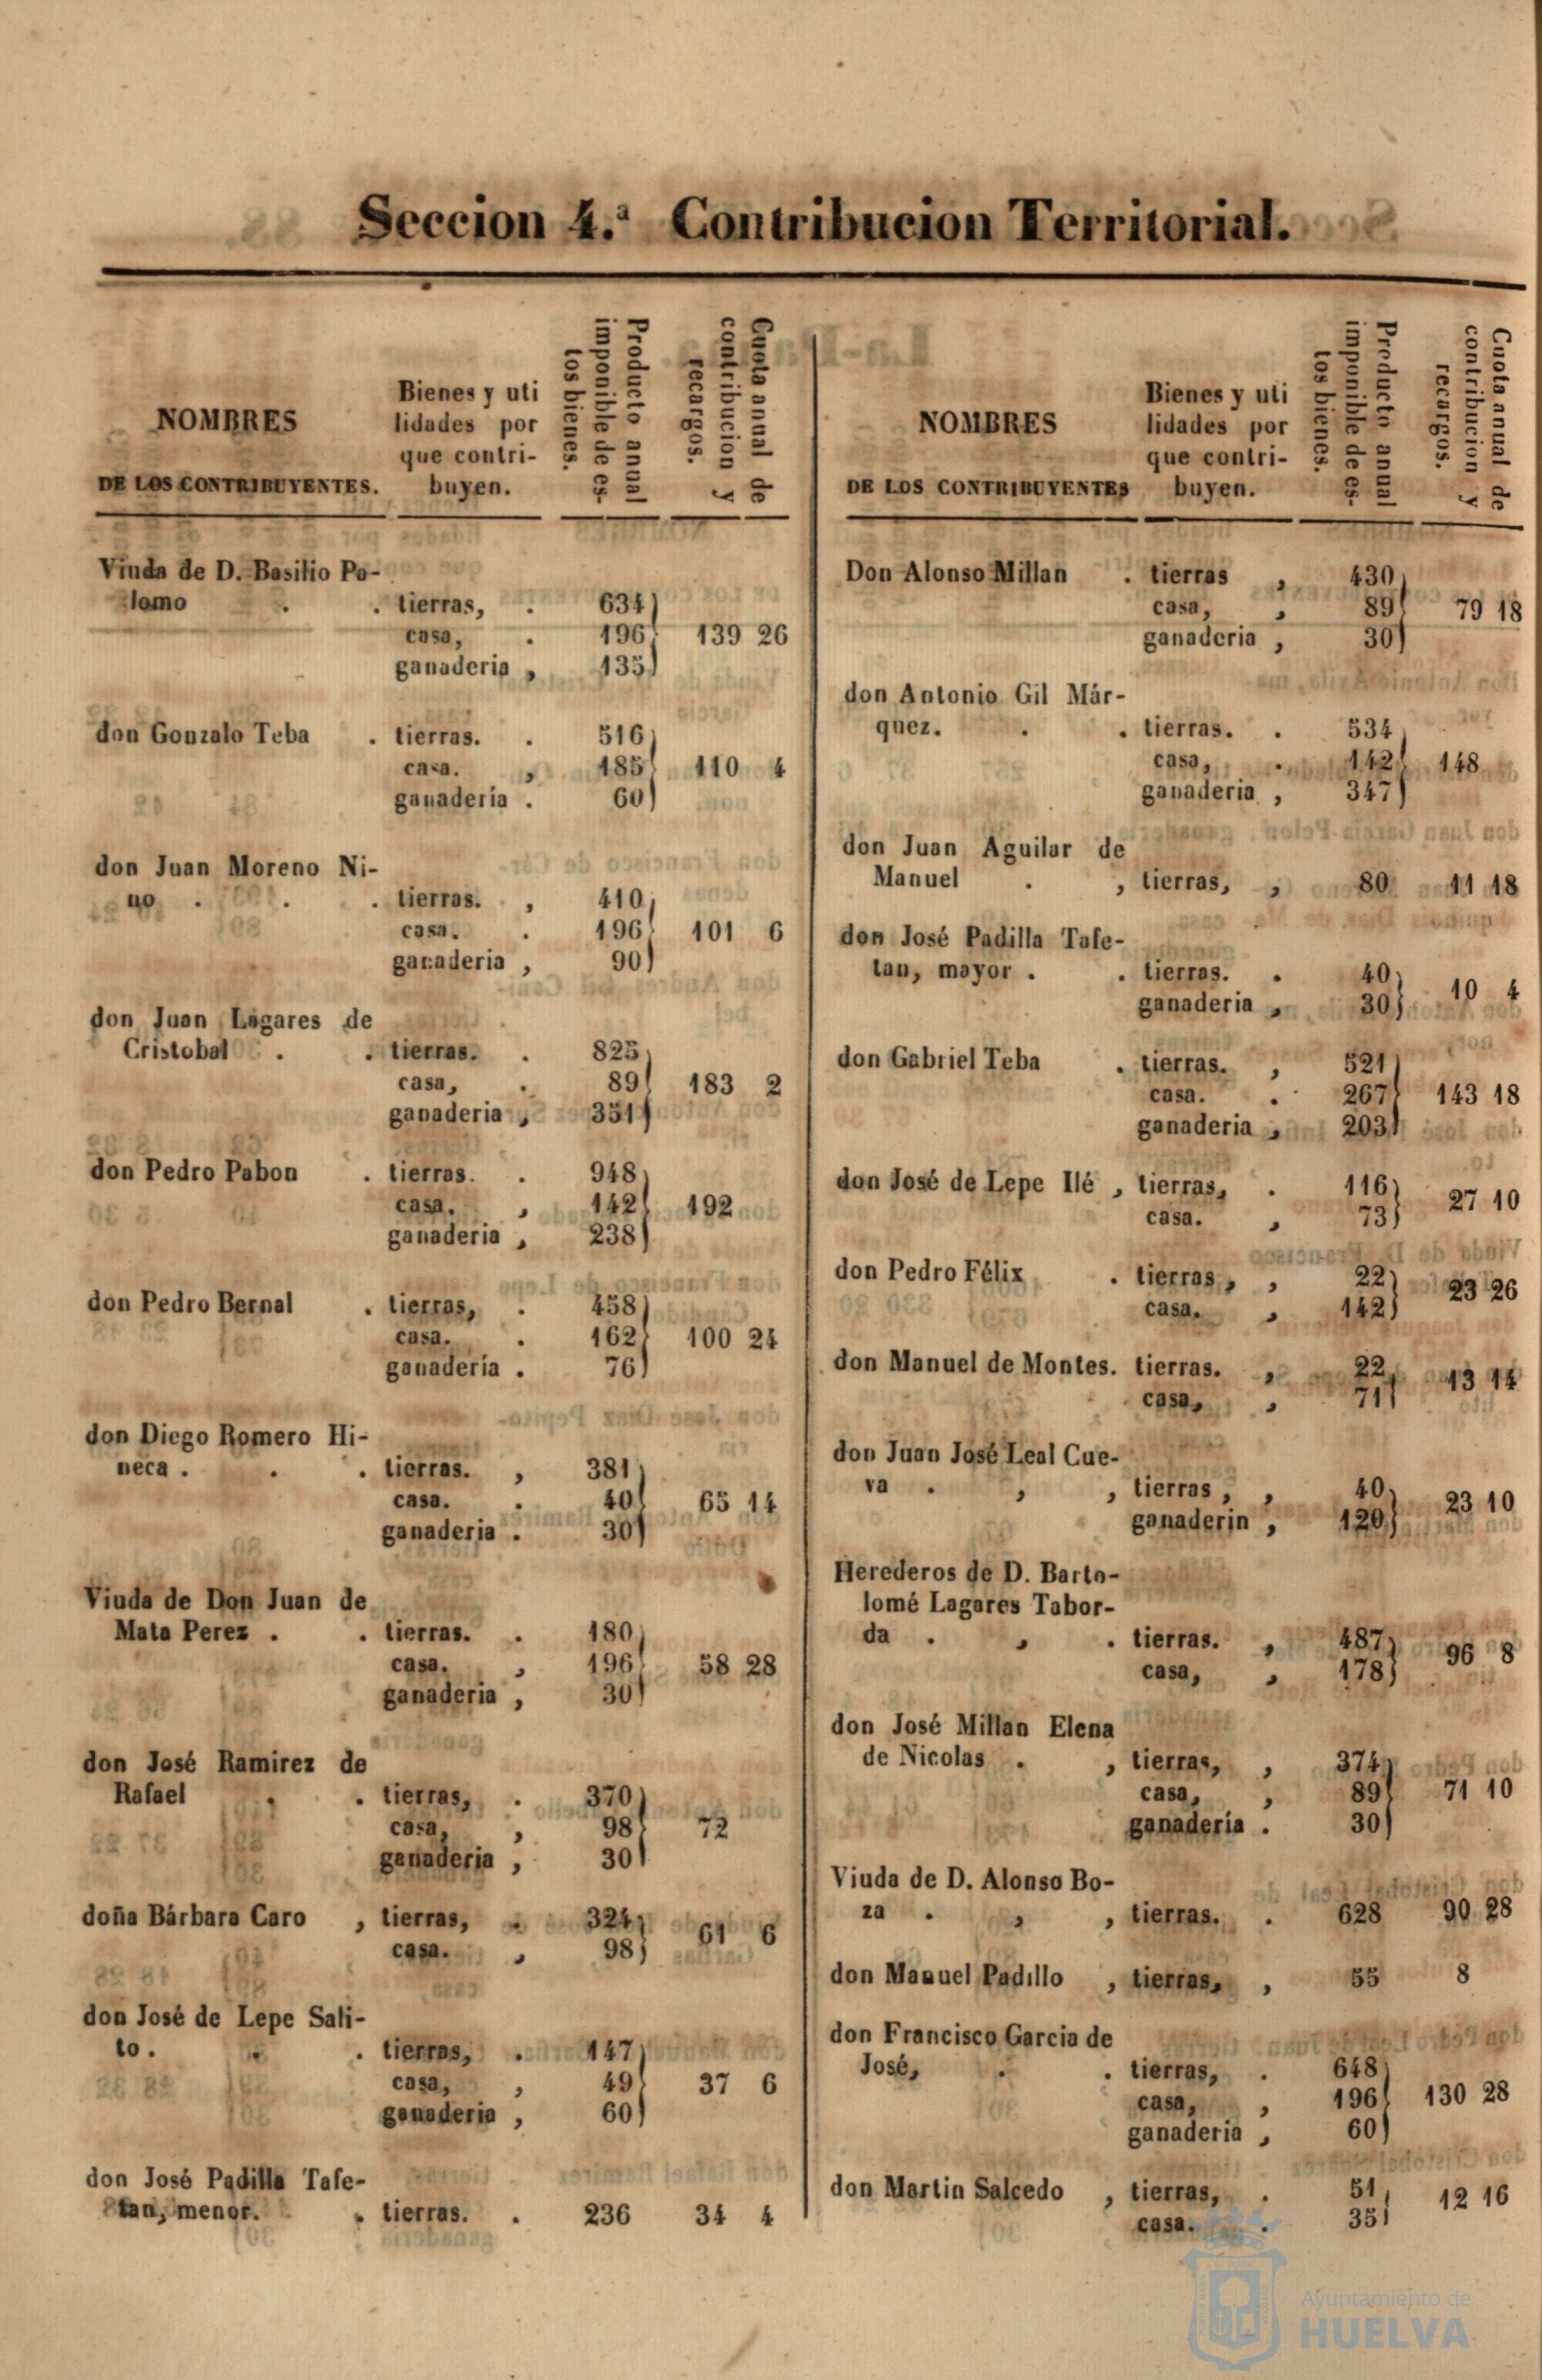 Seccion 4.ª Contribucion Territorial.
NOMBRES
DE LOS CONTRIBUYENTES.
Bienes y uti
lidades por
que contri-
buyen.
Producto anual
imponible de es-
tos bienes.
Cuota anual de
contribucion y
recargos.
Viuda de D. Basilio Pa-
lomo . . tierras, . 634
casa, . 196 139 26
ganaderia , 135
don Gonzalo Teba . tierras. . 516
casa. , 185 110 4
ganadería . 60
don Juan Moreno Ni-
no . . . tierras. , 410
casa. . 196 101 6
ganaderia , 90
don Juan Lagares de
Cristobal . . tierras. . 825
casa, . 89 183 2
ganaderia , 351
don Pedro Pabon . tierras. . 948
casa. , 142 192
ganaderia , 238
don Pedro Bernal . tierras, . 458
casa. . 162 100 24
ganadería . 76
don Diego Romero Hi-
neca . . . tierras. , 381
casa. . 40 65 14
ganaderia . 30
Viuda de Don Juan de
Mata Perez . . tierras. . 180
casa. , 196 58 28
ganaderia , 30
don José Ramirez de
Rafael . . tierras, . 370
casa, , 98 72
ganaderia , 30
doña Bárbara Caro , tierras, . 324
casa. , 98 61 6
don José de Lepe Sali-
to . . . tierras, . 147
casa, , 49 37 6
ganaderia , 60
don José Padilla Tafe-
tan, menor. . tierras. . 236 34 4
NOMBRES
DE LOS CONTRIBUYENTES
Bienes y uti
lidades por
que contri-
buyen.
Producto anual
imponible de es-
tos bienes.
Cuota anual de
contribucion y
recargos.
Don Alonso Millan . tierras , 430
casa, , 89 79 18
ganaderia , 30
don Antonio Gil Már-
quez. . . tierras. . 534
casa, . 142 148
ganaderia , 347
don Juan Aguilar de
Manuel . , tierras, , 80 11 18
don José Padilla Tafe-
tan, mayor . . tierras. . 40
ganaderia , 30 10 4
don Gabriel Teba . tierras. , 521
casa. . 267 143 18
ganaderia , 203
don José de Lepe Ilé , tierras, . 116
casa. , 73 27 10
don Pedro Félix . tierras , , 22
casa. , 142 23 26
don Manuel de Montes. tierras. , 22
casa, , 71 13 14
don Juan José Leal Cue-
va . , , tierras , , 40
ganaderin , 120 23 10
Herederos de D. Barto-
lomé Lagares Tabor-
da . , . tierras. , 487
casa, , 178 96 8
don José Millan Elena
de Nicolas . , tierras, , 374
casa, , 89 71 10
ganadería . 30
Viuda de D. Alonso Bo-
za . , , tierras. . 628 90 28
don Manuel Padillo , tierras, , 55 8
don Francisco Garcia de
José, . . tierras, . 648
casa, , 196 130 28
ganaderia , 60
don Martin Salcedo , tierras, . 51
casa. . 35 12 16
Ayuntamiento de
HUELVA